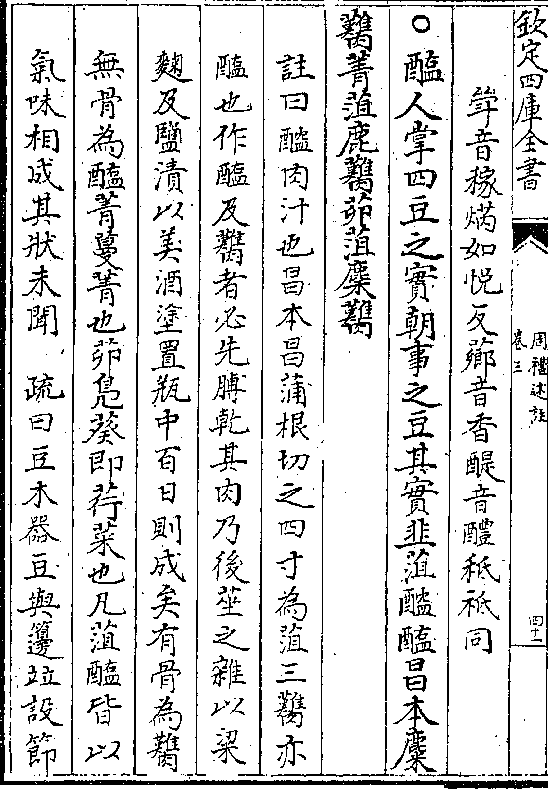 欽定四庫全書
周禮述註
卷三
四十一
斝音稼焫如悅反薌音香醍音醴秪祇同
○醢人掌四豆之實朝事之豆其實韭菹醓醢昌本麋
臡菁菹鹿臡茆菹麋臡
註曰醓肉汁也昌本昌蒲根切之四寸為菹三臡亦
醢也作醢及臡者必先膊乾其肉乃後莝之雜以粱
麴及鹽漬以美酒塗置瓶中百日則成矣有骨為臡
無骨為醢菁蔓菁也茆鳧葵即荇菜也凡菹醢皆以
氣味相成其狀未聞　疏曰豆木器豆與籩竝設節